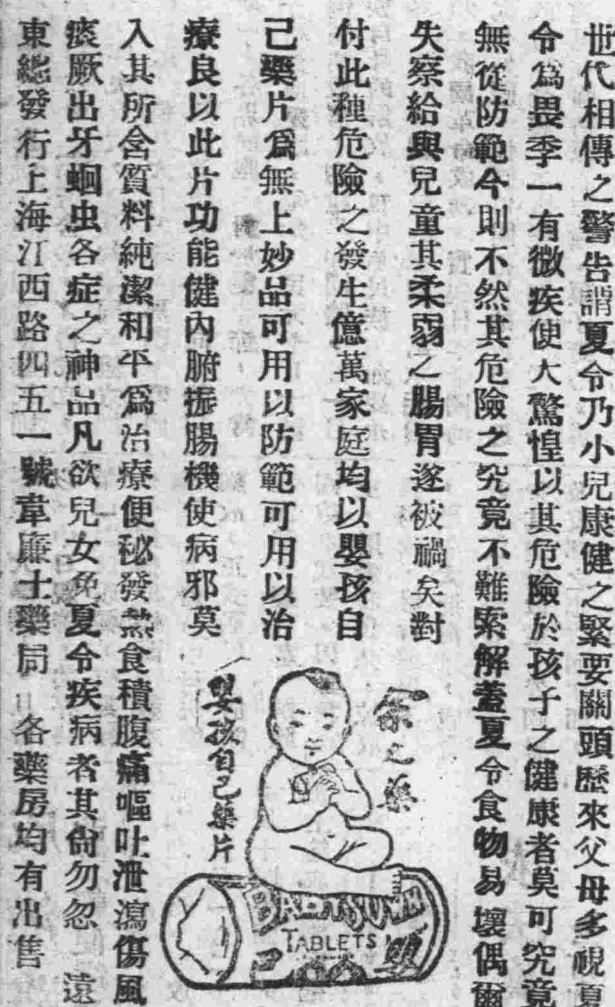 世代相傳之警告謂夏令乃小兒康健之緊要關頭歷來父母多視夏
令爲畏季一有微疾使大驚惶以其危險於孩子之健康者莫可究竟
無從防範今則不然其危險之究竟不難索解蓋夏令食物易壞偶爾
失察給與兒童其柔弱之腸胃遂被禍矣對
付此種危險之發生億萬家庭均以嬰孩自
己藥片爲無上妙品可用以防範可用以治
療良以此片功能健內腑振腸機使病邪莫
入其所含質料純潔和平爲治療便秘發熱食積腹痛嘔吐泄瀉傷風
痰厥出牙蛔虫各症之神品凡欲兒女免夏令疾病者其尙勿忽 遠
東總發行上海江西路四五一號韋廉士藥局 各藥房均有出售
余之藥
嬰孩自己藥片
TABLETS